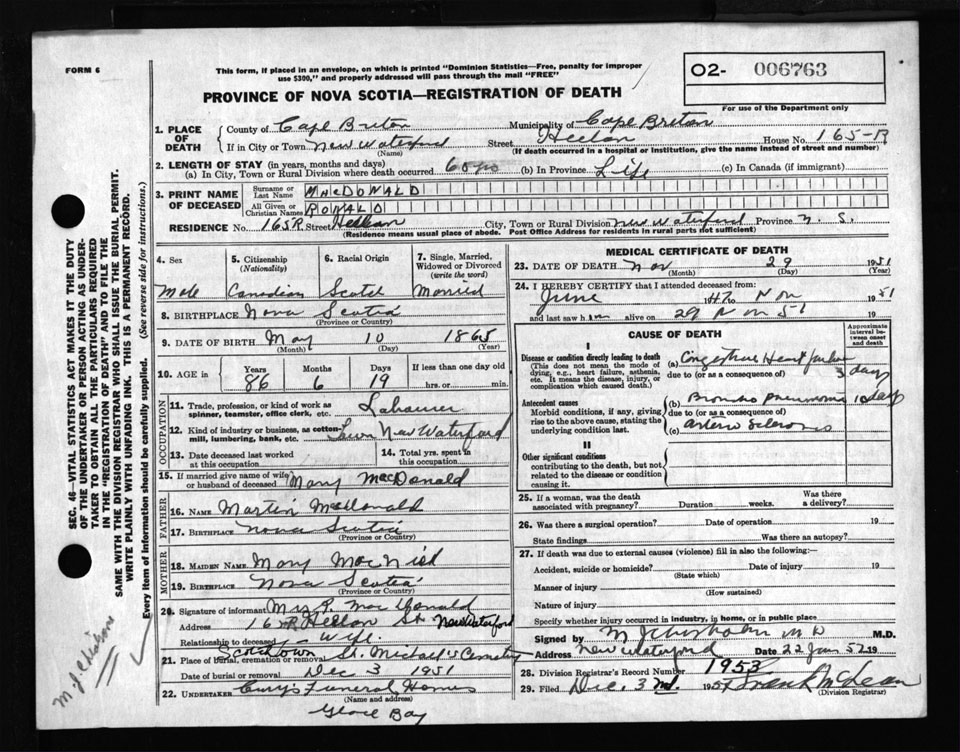 FORM 6
This form, if placed in an envelope, on which is printed "Dominion Statistics—Free, penalty for improper
use $300," and properly addressed will pass through the mail "FREE"
O2- 006763
For use of the Department only
PROVINCE OF NOVA SCOTIA—REGISTRATION OF DEATH
1. PLACE OF DEATH
County of Cape Breton Municipality of Cape Breton
If in City or Town New Waterford Street House No. 165-R
(Name) (If death occurred in a hospital or institution, give the name instead of street and number)
2. LENGTH OF STAY (in years, months and days)
(a) In City, Town or Rural Division where death occurred 60 yrs (b) In Province Life (c) In Canada (if immigrant)
3. PRINT NAME OF DECEASED
Surname or Last Name MACDONALD
All Given or Christian Names RONALD
RESIDENCE No. 165R Street City, Town or Rural Division New Waterford Province N. S.
(Residence means usual place of abode. Post Office Address for residents in rural parts not sufficient)
4. Sex
Male
5. Citizenship
(Nationality)
Canadian
6. Racial Origin
Scotch
7. Single, Married,
Widowed or Divorced
(write the word)
Married
8. BIRTHPLACE Nova Scotia
(Province or Country)
9. DATE OF BIRTH May 10 1865
(Month) (Day) (Year)
10. AGE in
Years Months Days If less than one day old
86 6 19 hrs. or min.
OCCUPATION
11. Trade, profession, or kind of work as
spinner, teamster, office clerk, etc.
12. Kind of industry or business, as cotton-
mill, lumbering, bank, etc. Town New Waterford
13. Date deceased last worked
at this occupation
14. Total yrs. spent in
this occupation
15. If married give name of wife
or husband of deceased Mary MacDonald
FATHER
16. NAME Martin MacDonald
17. BIRTHPLACE Nova Scotia
(Province or Country)
MOTHER
18. MAIDEN NAME Mary
19. BIRTHPLACE Nova Scotia
(Province or Country)
20. Signature of informant Mrs R. MacDonald
Address 165R St. New Waterford
Relationship to deceased Wife.
21. Place of burial, cremation or removal Scotchtown St. Michael's Cemetery
Date of burial or removal Dec 3 1951
22. UNDERTAKER Curry's Funeral Homes
(Name and address)
Glace Bay
MEDICAL CERTIFICATE OF DEATH
23. DATE OF DEATH Nov 29 1951
(Month) (Day) (Year)
24. I HEREBY CERTIFY that I attended deceased from:
June 1947 to Nov 1951
and last saw him alive on 29 Nov 51
CAUSE OF DEATH
Approximate
interval be-
tween onset
and death
I
Disease or condition directly leading to death
(This does not mean the mode of
dying, e.g., heart failure, asthenia,
etc. It means the disease, injury, or
complication which caused death.)
(a) Congestive Heart failure 3 days
due to (or as a consequence of)
Antecedent causes
Morbid conditions, if any, giving
rise to the above cause, stating the
underlying condition last.
(b) Broncho Pneumonia 10 days
due to (or as a consequence of)
(c) Arterio Sclerosis
II
Other significant conditions
contributing to the death, but not
related to the disease or condition
causing it.
25. If a woman, was the death
associated with pregnancy? Duration weeks. Was there
a delivery?
26. Was there a surgical operation? Date of operation 19
State findings Was there an autopsy?
27. If death was due to external causes (violence) fill in also the following:—
Accident, suicide or homicide? Date of injury 19
(State which)
Manner of injury
(How sustained)
Nature of injury
Specify whether injury occurred in industry, in home, or in public place
Signed by M J Chisholm M D M.D.
Address New Waterford Date 22 Jan 52 19
28. Division Registrar's Record Number 1953
29. Filed Dec. 3rd. 1951 Frank McLean
(Division Registrar)
SEC. 46—VITAL STATISTICS ACT MAKES IT THE DUTY
OF THE UNDERTAKER OR PERSON ACTING AS UNDER-
TAKER TO OBTAIN ALL THE PARTICULARS REQUIRED
IN THE "REGISTRATION OF DEATH" AND TO FILE THE
SAME WITH THE DIVISION REGISTRAR WHO SHALL ISSUE THE BURIAL PERMIT.
WRITE PLAINLY WITH UNFADING INK. THIS IS A PERMANENT RECORD.
Every item of Information should be carefully supplied. (See reverse side for instructions.)
M J Chisholm